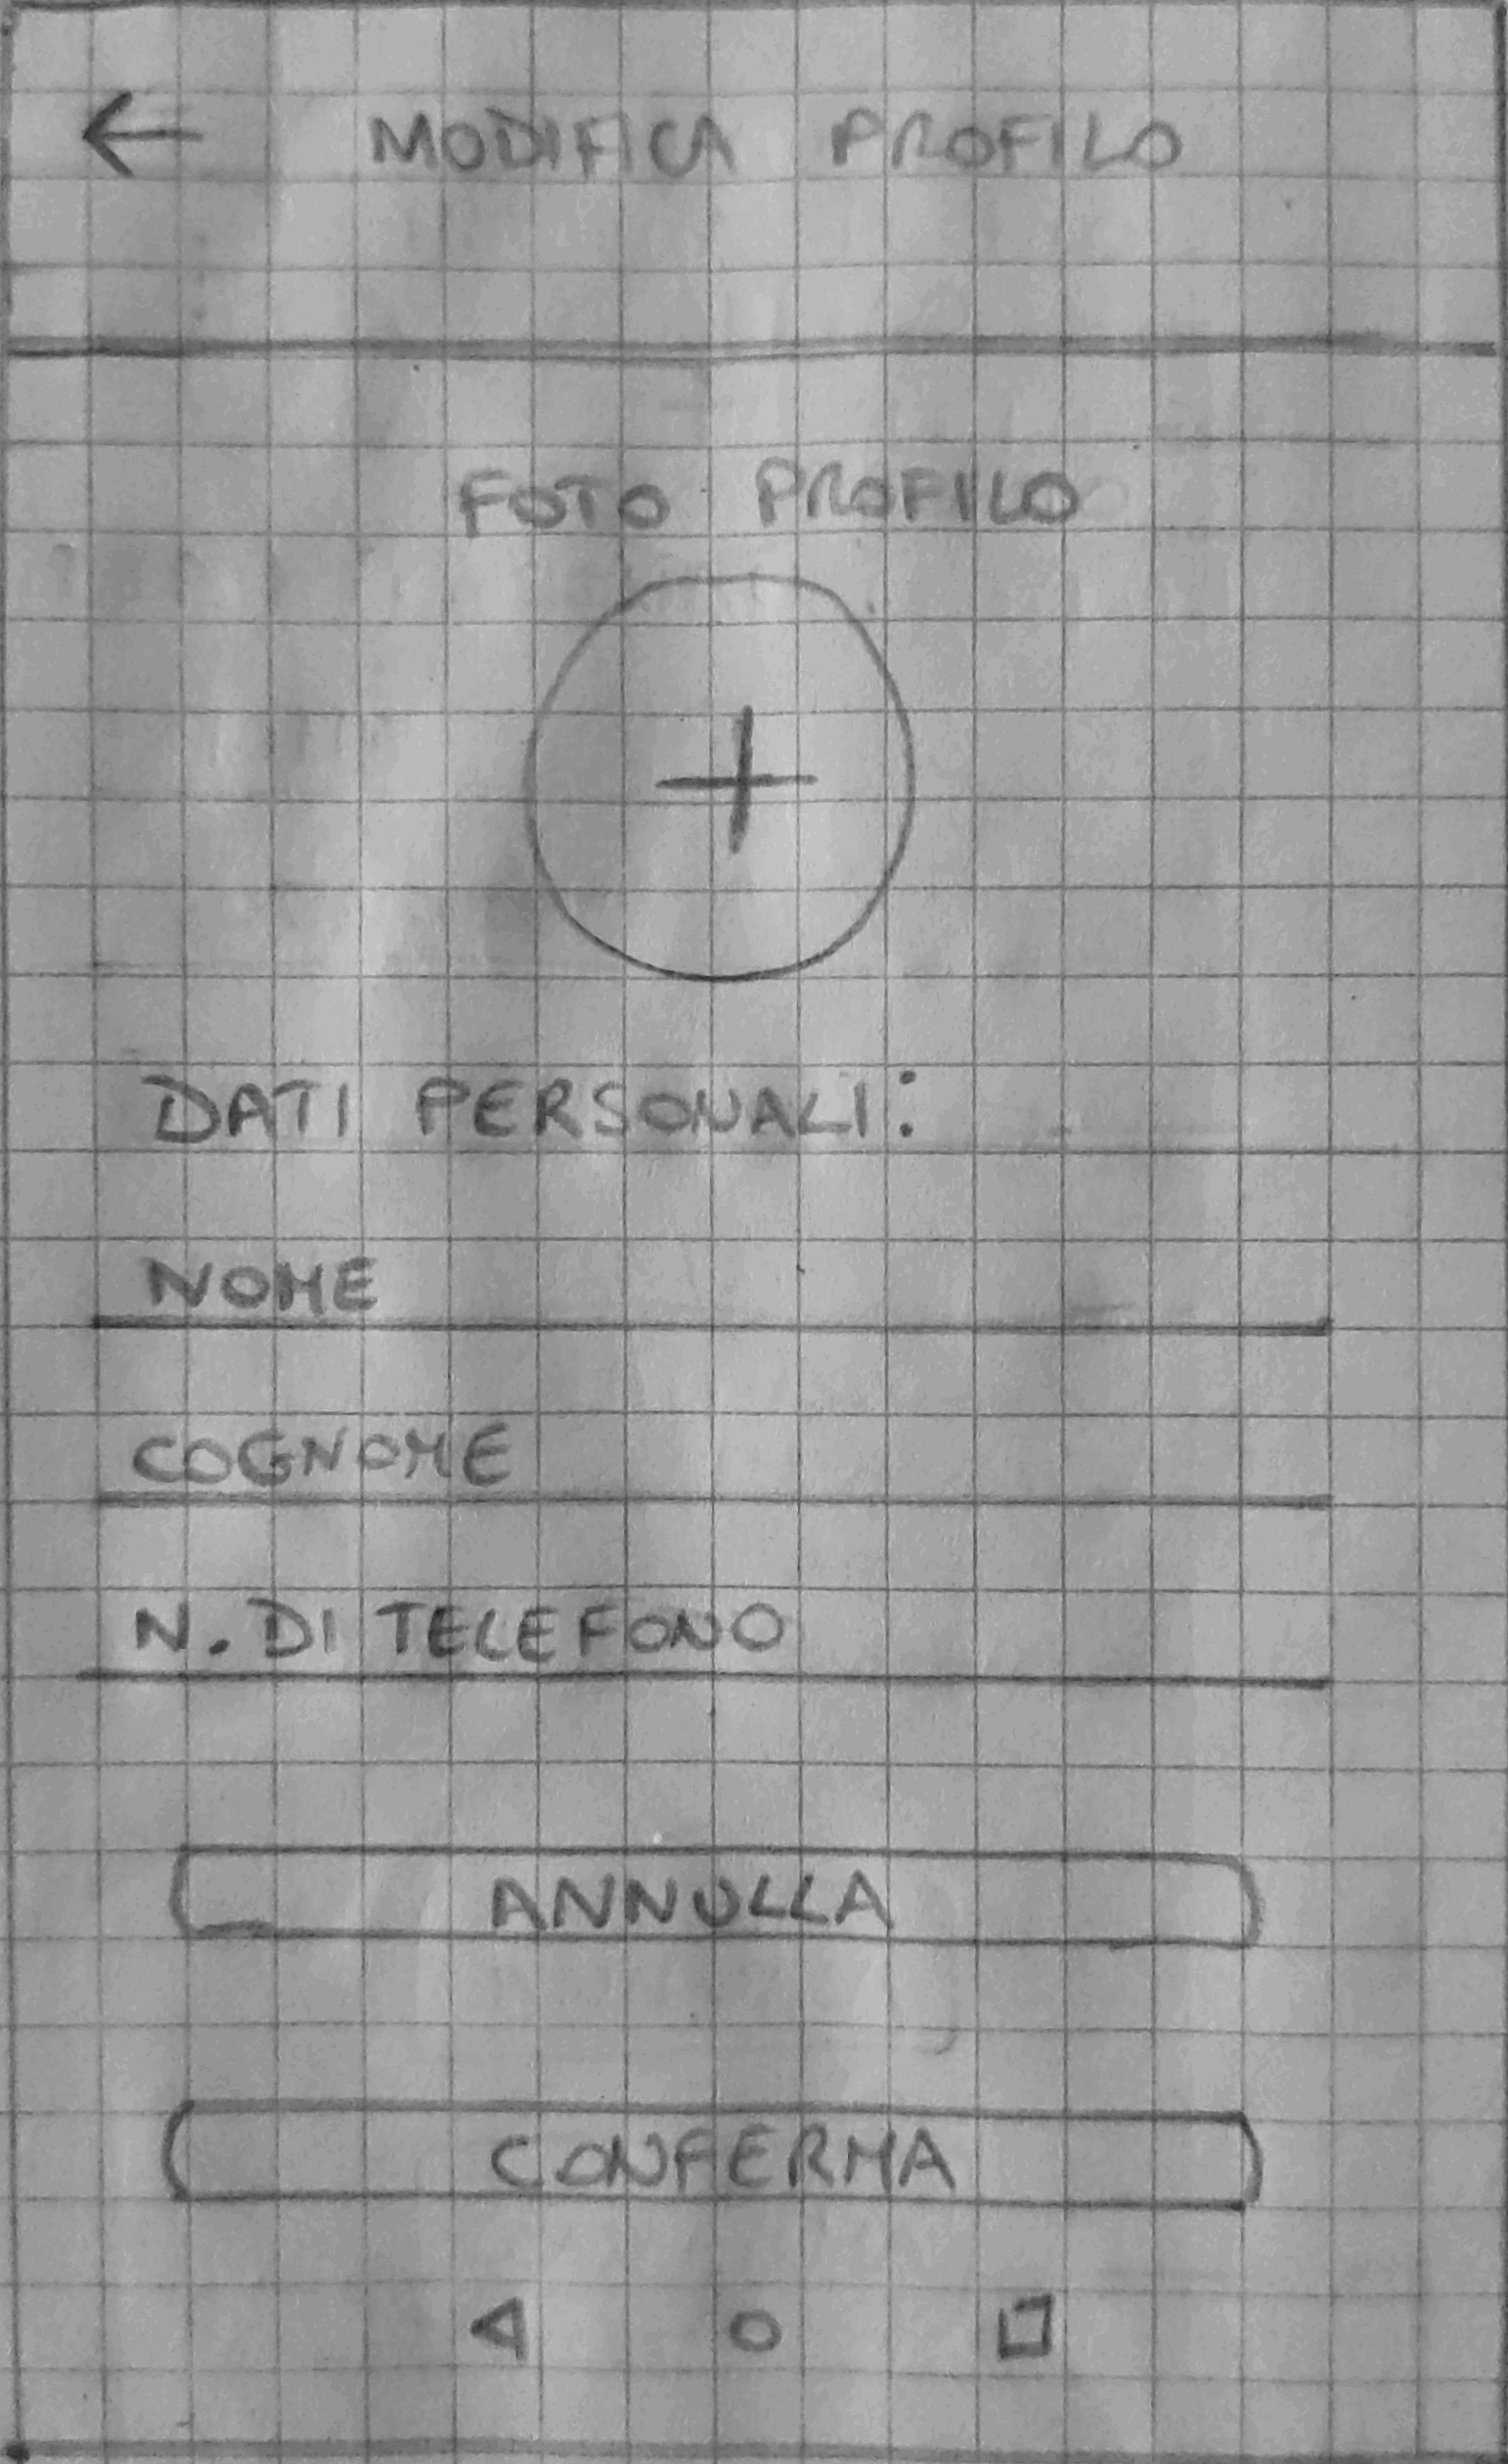 MODIFICA PROFILO
FOTO PROFILO
DATI PERSONALI:
NOME
COGNOME
N. DI TELEFONO
ANNULLA
CONFERMA